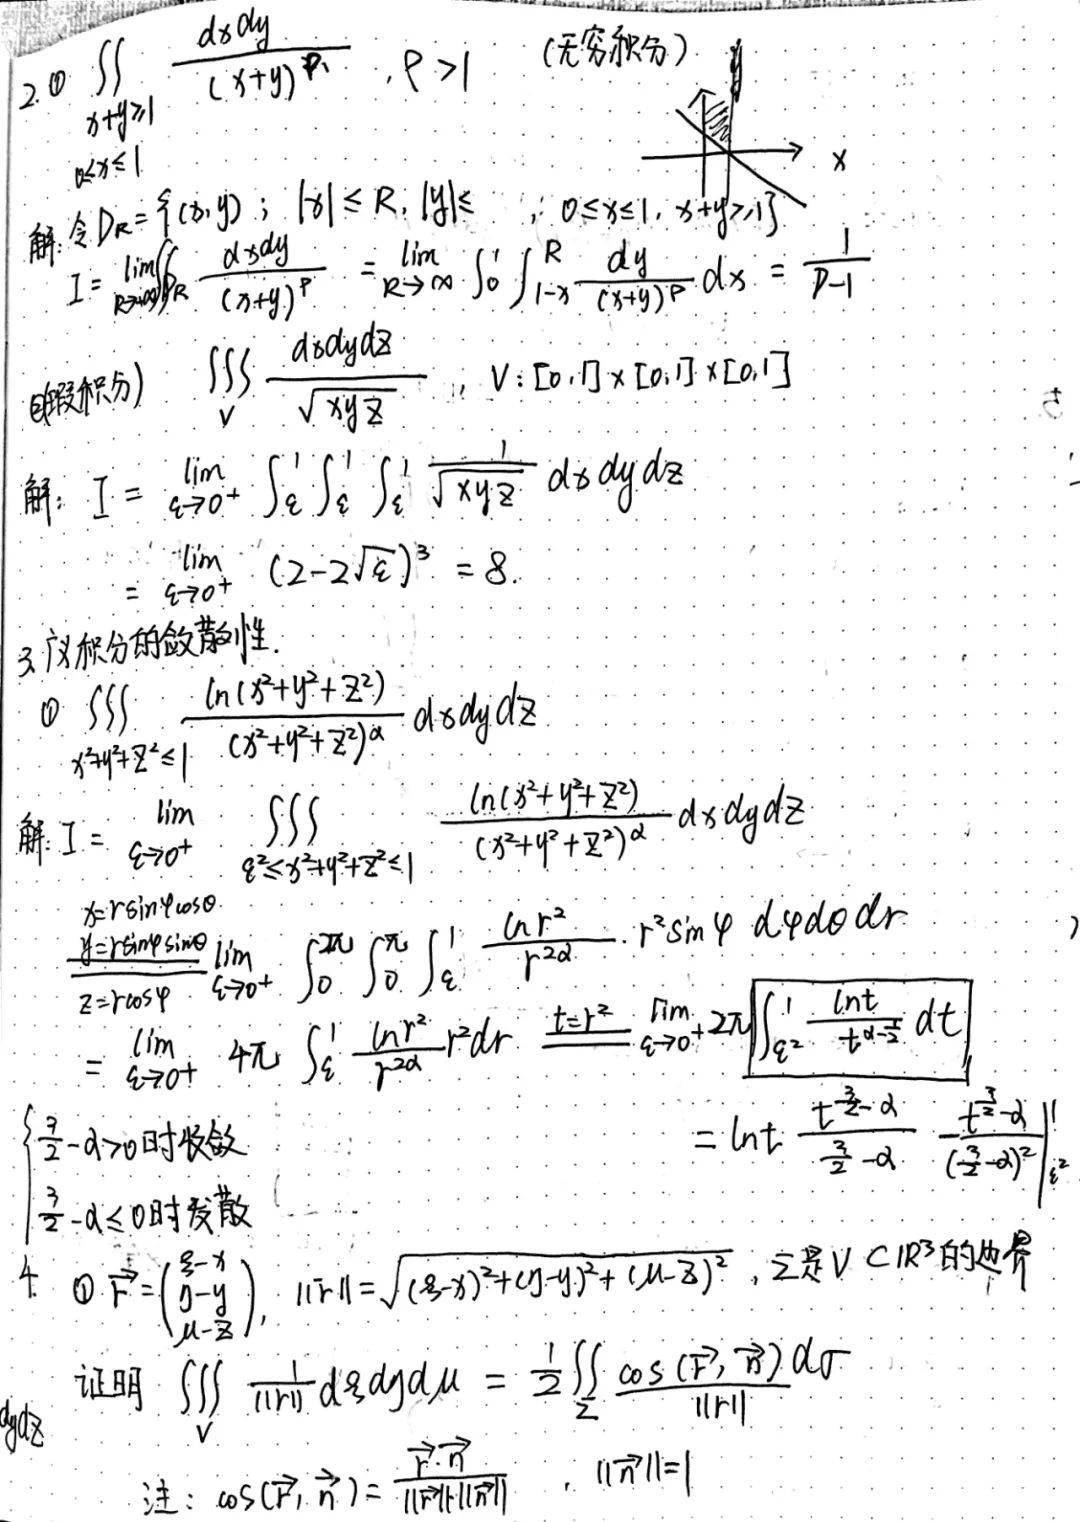 2.① ∬_{x+y≥1, 0≤x≤1} dxdy/(x+y)^p, p>1 (无穷积分) y
x
解:令D_R={(x,y); |x|≤R, |y|≤ , 0≤x≤1, x+y≥1}
I=lim_{R→+∞}∬_{D_R} dxdy/(x+y)^p = lim_{R→∞} ∫_0^1 ∫_{1-x}^R dy/(x+y)^p dx = 1/(p-1)
②(瑕积分) ∭_V dxdydz/√(xyz), V:[0,1]×[0,1]×[0,1]
解: I= lim_{ε→0+} ∫_ε^1 ∫_ε^1 ∫_ε^1 1/√(xyz) dxdydz
= lim_{ε→0+} (2-2√ε)^3 =8.
3.广义积分的敛散性.
① ∭_{x²+y²+z²≤1} ln(x²+y²+z²)/(x²+y²+z²)^α dxdydz
解:I= lim_{ε→0+} ∭_{ε²≤x²+y²+z²≤1} ln(x²+y²+z²)/(x²+y²+z²)^α dxdydz
x=rsinφcosθ
y=rsinφsinθ
z=rcosφ
lim_{ε→0+} ∫_0^{2π} ∫_0^π ∫_ε^1 lnr²/r^{2α} · r²sinφ dφdθdr
= lim_{ε→0+} 4π ∫_ε^1 lnr²/r^{2α} r²dr =(t=r²)= lim_{ε→0+} 2π ∫_{ε²}^1 lnt/t^{α-1/2} dt
{ 3/2-α>0时收敛
= lnt t^{3/2-α}/(3/2-α) t^{3/2-α}/(3/2-α)² |_{ε²}^1
3/2-α≤0时发散
4. ① r⃗=(ξ-x, η-y, μ-z), ||r||=√((ξ-x)²+(η-y)²+(μ-z)²), Σ是V⊂ℝ³的边界
证明 ∭_V 1/||r|| dξdηdμ = 1/2 ∬_Σ cos(r⃗,n⃗)dσ/||r||
dydz
注: cos(r⃗,n⃗)= r⃗·n⃗/(||r⃗||·||n⃗||), ||n⃗||=1